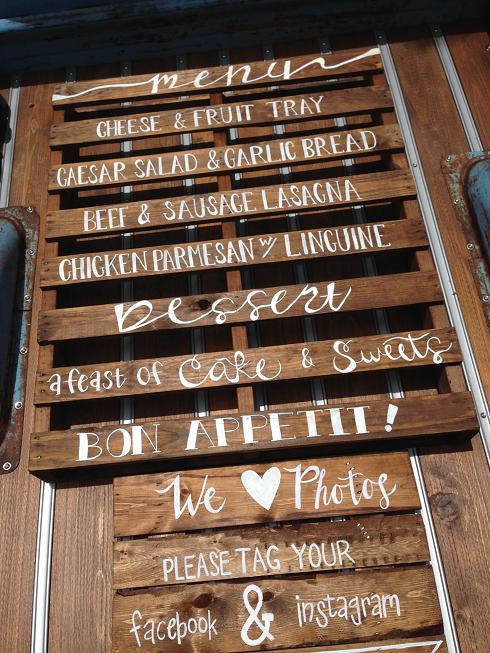 menu
CHEESE & FRUIT TRAY
CAESAR SALAD & GARLIC BREAD
BEEF & SAUSAGE LASAGNA
CHICKEN PARMESAN w/ LINGUINE
Dessert
a feast of Cake & Sweets
BON APPETIT!
We ♥ Photos
PLEASE TAG YOUR
facebook & instagram